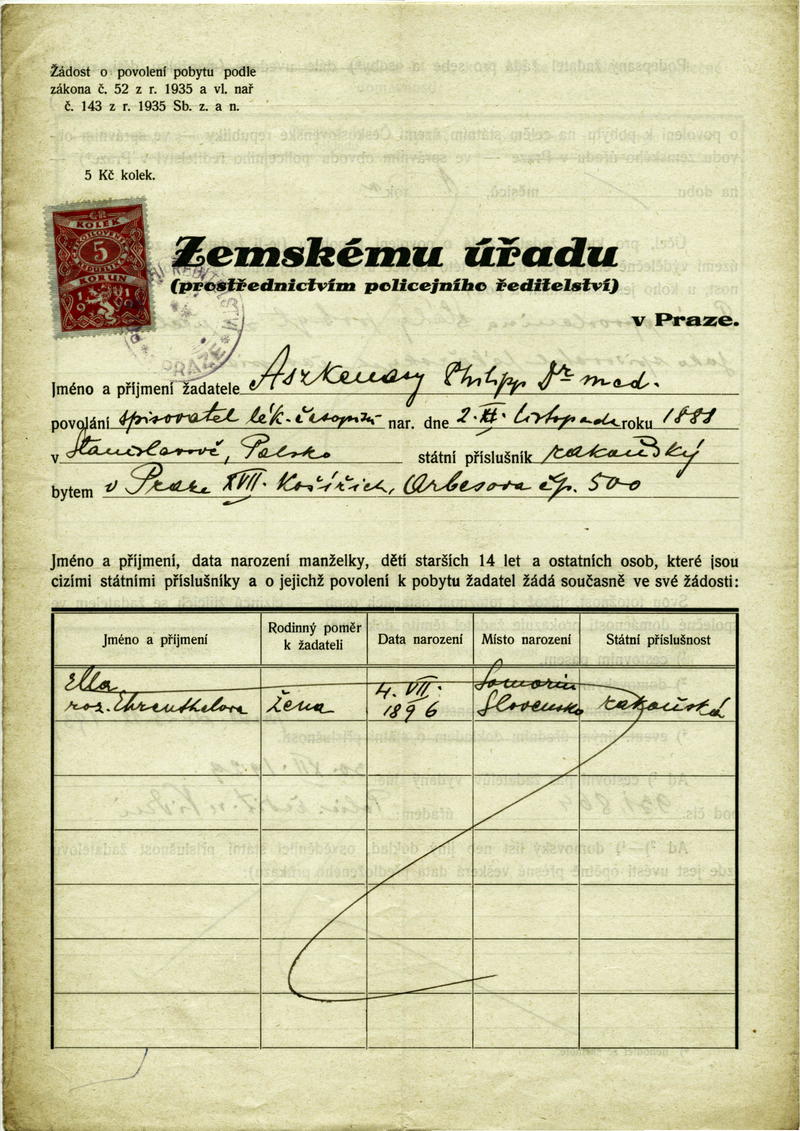 Žádost o povolení pobytu podle
zákona č. 52 z r. 1935 a vl. nař
č. 143 z r. 1935 Sb. z. a n.
5 Kč kolek.
ČR
KOLEK
5
KORUN
PRAZE
Zemskému úřadu
(prostřednictvím policejního ředitelství)
v Praze.
Jméno a příjmení žadatele Aszkenasy Philipp Dr med.
povolání spisovatel lék. časopisů nar. dne 2. XI. listopadu roku 1888
v Stanislavově, Polsko státní příslušník rakouský
bytem v Praze XVII. Košířích, Arbesova čp. 500
Jméno a příjmení, data narození manželky, dětí starších 14 let a ostatních osob, které jsou
cizími státními příslušníky a o jejichž povolení k pobytu žadatel žádá současně ve své žádosti:
Jméno a příjmení Rodinný poměr k žadateli Data narození Místo narození Státní příslušnost
Ella 4. VII. Somorin
roz. Ehrenthelova žena 1896 Slovensko rakouská